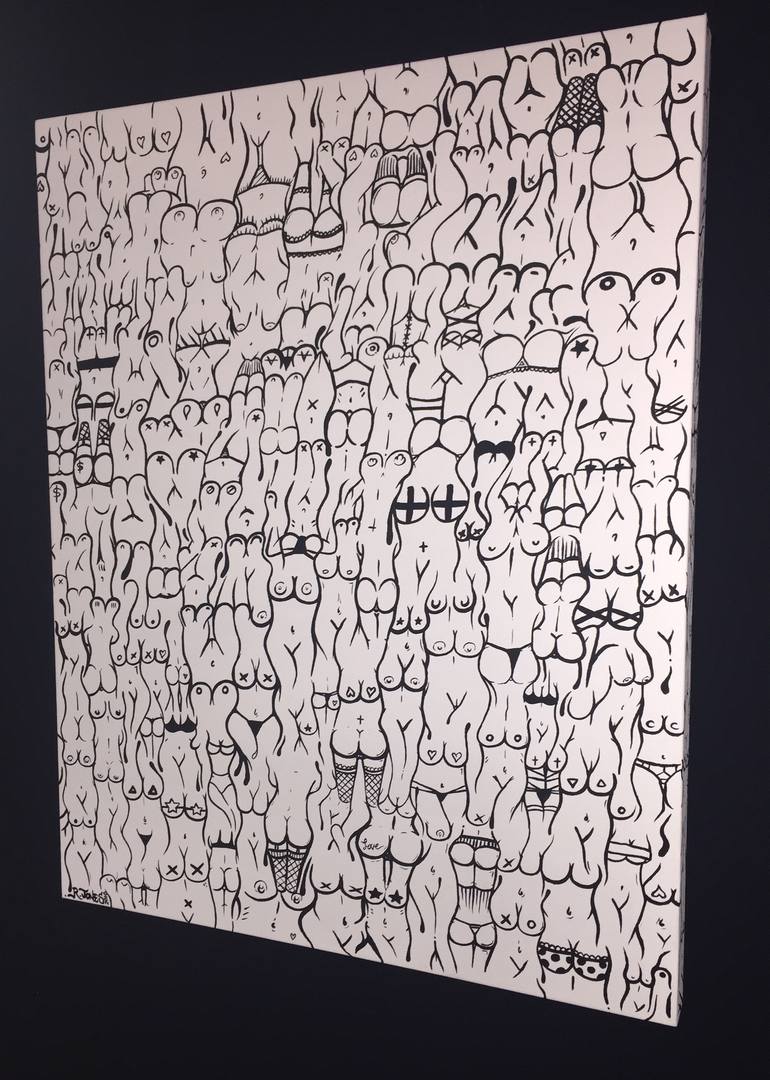 $
$
Love
R.JONES